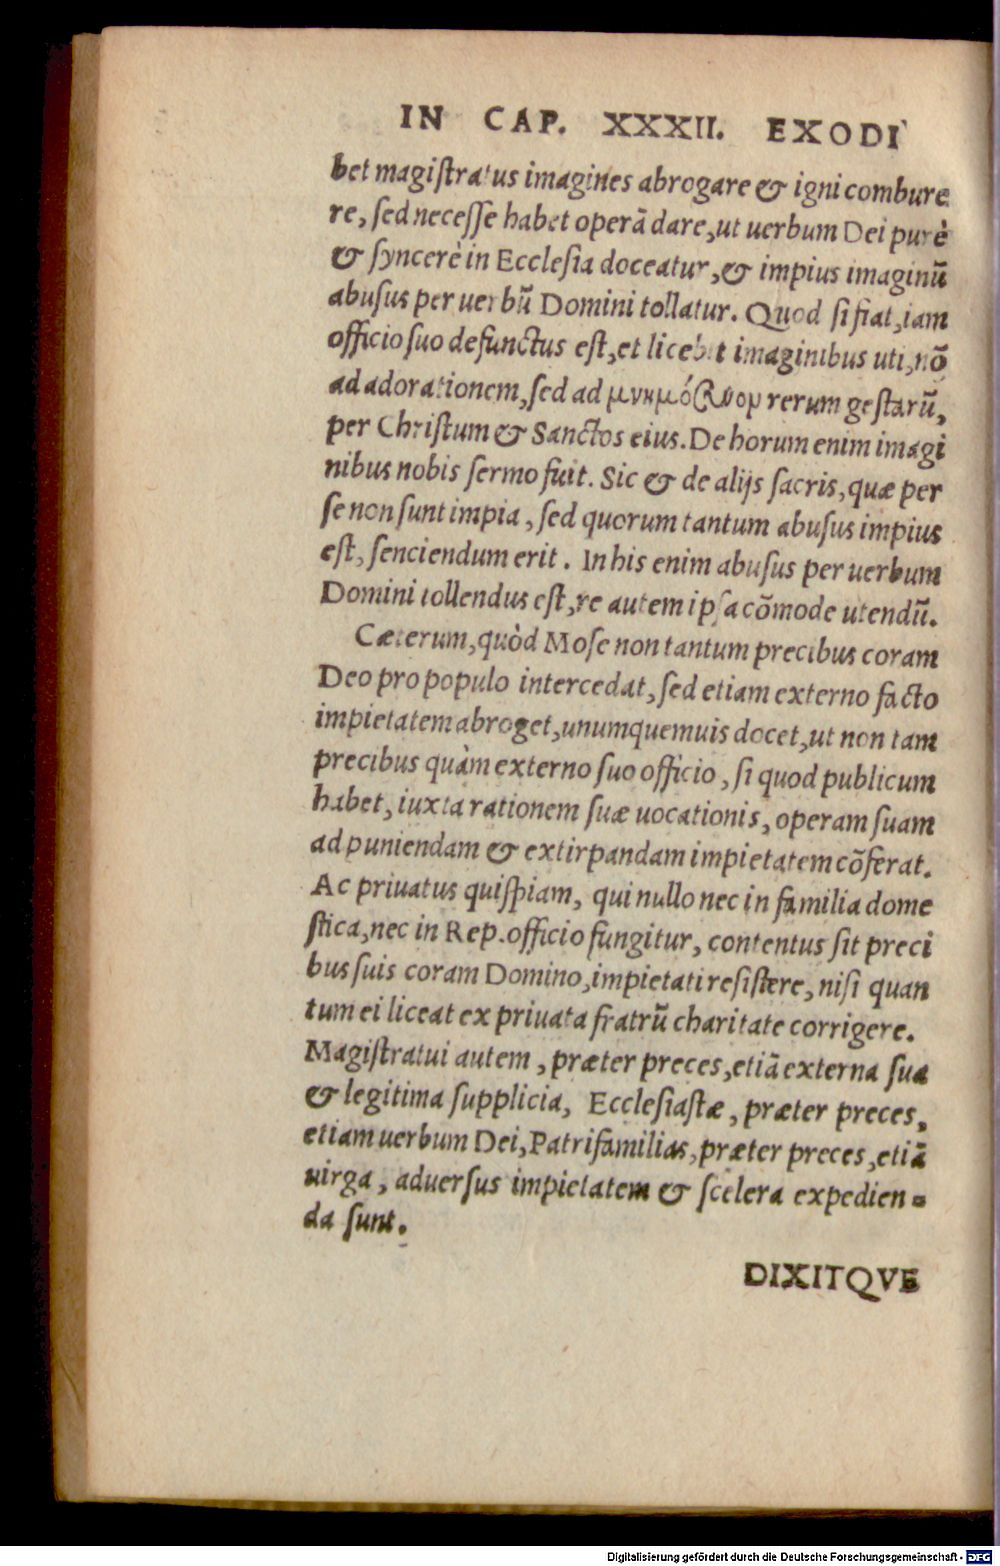 IN CAP. XXXII. EXODI
bet magiſtratus imagines abrogare & igni combure
re, ſed neceſſe habet operā dare, ut uerbum Dei purè
& ſyncerè in Eccleſia doceatur, & impius imaginū
abuſus per uerbū Domini tollatur. Quod ſi fiat, iam
officio ſuo defunctus eſt, et licebit imaginibus uti, nō
ad adorationem, ſed ad μνημόσυνον rerum geſtarū,
per Chriſtum & Sanctos eius. De horum enim imagi
nibus nobis ſermo fuit. Sic & de alijs ſacris, quæ per
ſe non ſunt impia, ſed quorum tantum abuſus impius
eſt, ſenciendum erit. In his enim abuſus per uerbum
Domini tollendus eſt, re autem ipſa cōmode utendū.
Cæterum, quòd Moſe non tantum precibus coram
Deo pro populo intercedat, ſed etiam externo facto
impietatem abroget, unumquemuis docet, ut non tam
precibus quàm externo ſuo officio, ſi quod publicum
habet, iuxta rationem ſuæ uocationis, operam ſuam
ad puniendam & extirpandam impietatem cōferat.
Ac priuatus quiſpiam, qui nullo nec in familia dome
ſtica, nec in Rep. officio fungitur, contentus ſit preci
bus ſuis coram Domino, impietati reſiſtere, niſi quan
tum ei liceat ex priuata fratrū charitate corrigere.
Magiſtratui autem, præter preces, etiā externa ſua
& legitima ſupplicia, Eccleſiaſtæ, præter preces,
etiam uerbum Dei, Patrifamilias, præter preces, etiā
uirga, aduerſus impietatem & ſcelera expedien-
da ſunt.
DIXITQVE
Digitalisierung gefördert durch die Deutsche Forschungsgemeinschaft - DFG